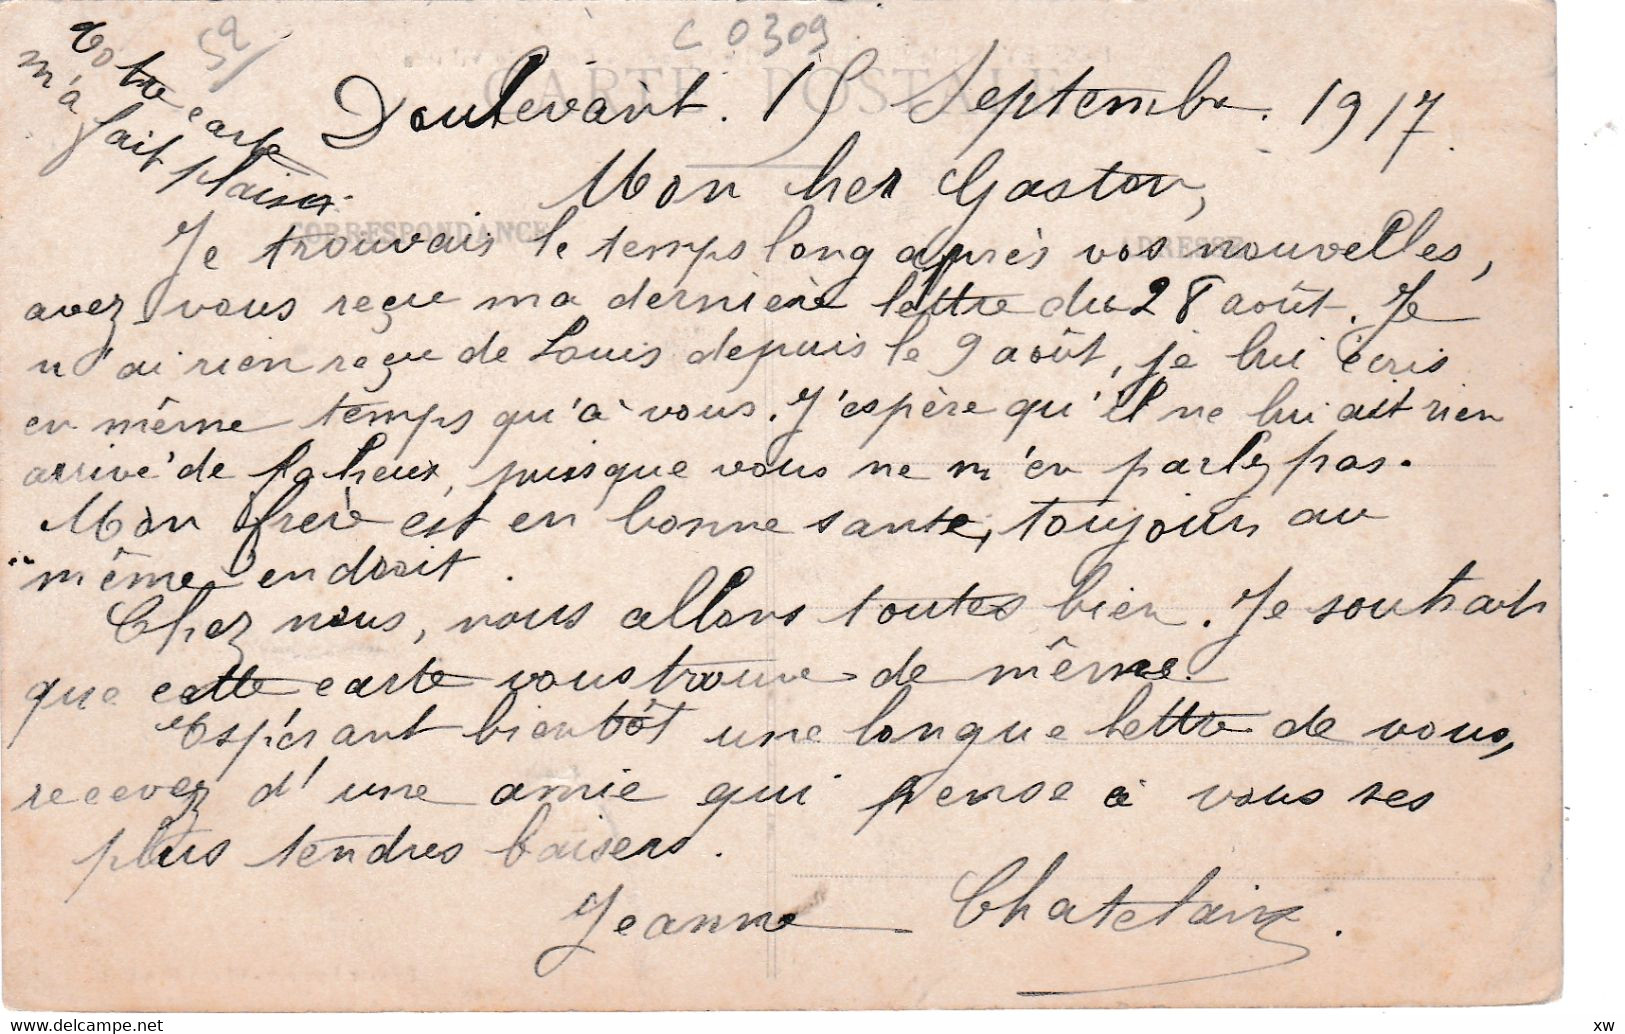 C 0309
52
CARTE POSTALE
Votre carte
m'a fait plaisir.
Doulevant. 15 Septembre. 1917.
Mon cher Gaston,
CORRESPONDANCE
ADRESSE
Je trouvais le temps long après vos nouvelles,
avez-vous reçue ma dernière lettre du 28 août. Je
n'ai rien reçue de Louis depuis le 9 août, je lui écris
en même temps qu'à vous. J'espère qu'il ne lui ait rien
arrivé de facheux, puisque vous ne m'en parlez pas.
Mon frère est en bonne santé, toujours au
même endroit.
Chez nous, nous allons toutes bien. Je souhaite
que cette carte vous trouve de même.
Espérant bientôt une longue lettre de vous,
recevez d'une amie qui pense à vous ses
plus tendres baisers.
Jeanne Chatelain.
www.delcampe.net
xw